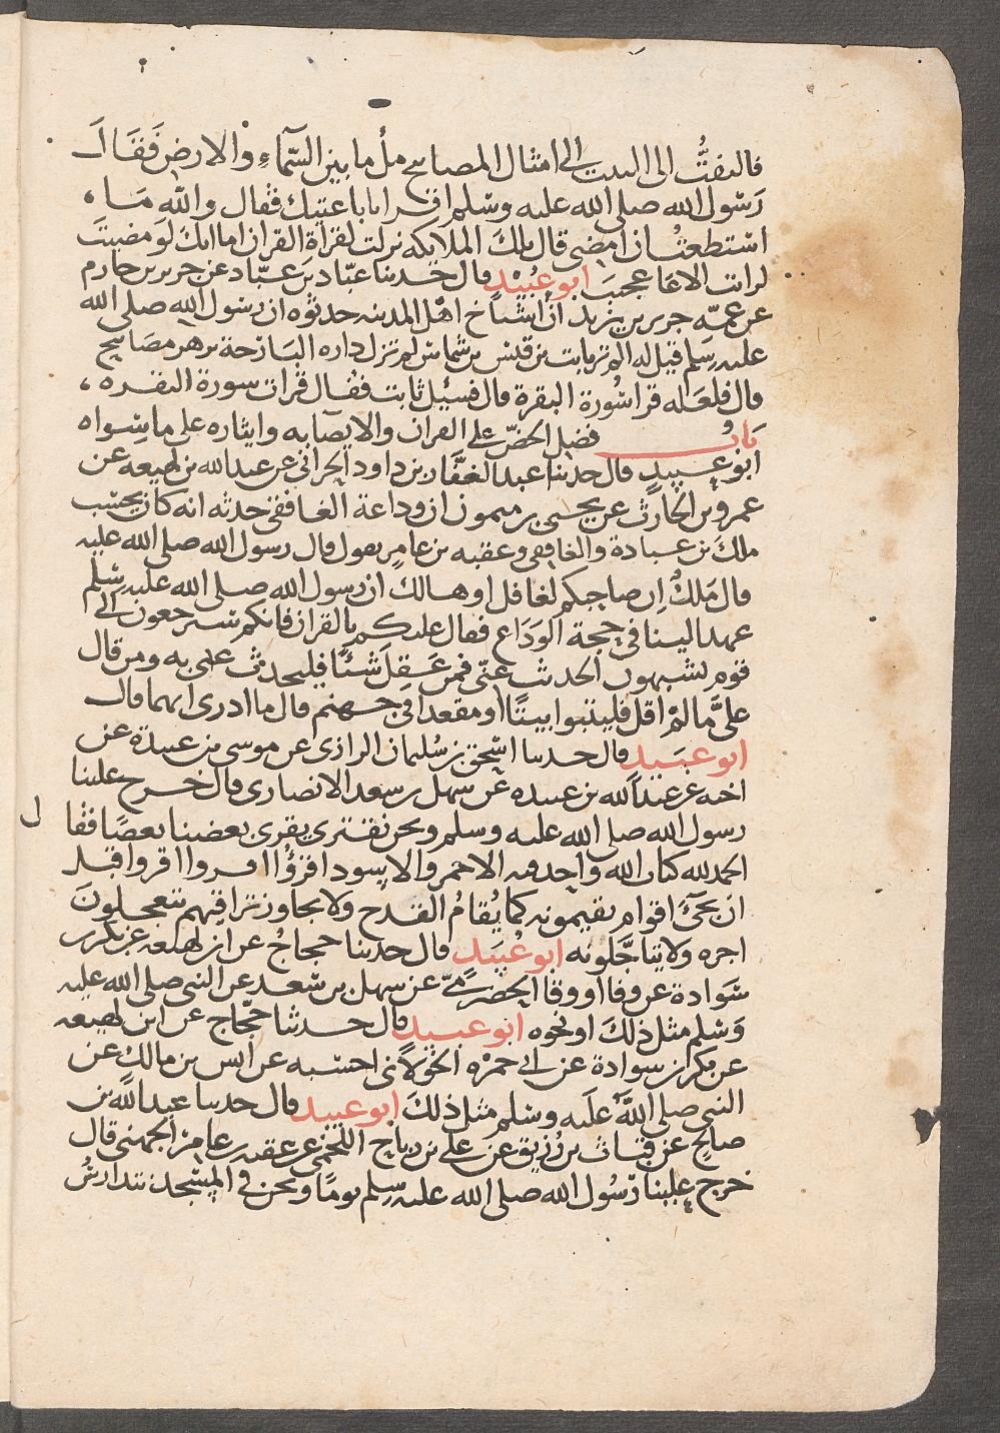 فالتفتُّ الى البيت الى امثال المصابيح ملأ ما بين السّمآءِ والارض فَقَال
رَسُول الله صلى الله عليه وسّلم اقرا يابا عتيك فقال والله مَا ،
اسْتطعتُ ان امضى قال تلك الملايكه نزلت لقراة القران اما انك لو مضيتَ
لرات الاعاجيبَ ابو عُبيْد قال حدثنا عبّاد بن عبّاد عن جرير بن حازم
عن عمّه جرير بن يزيد ان اشياخ اهل المدينه حدثوه ان رسُول الله صلى الله
عليه وسلم قيل له الم تر ثابت بن قيس بن شماس لم تزل داره البارحة تزهر مصَابيح
قال فلعَله قرا سُورة البقرة قال فسُيل ثابت فقال قرات سورة البقره ،
بَابُ فضل الحضّ على القران والايصآ به وايثاره على ما سِواه
ابو عبيد قال حدثنا عبد الغفَّار بن داود الحرانى عن عبد الله بن لهيعه عن
عمرو بن الحارث عن يحيى بن ميمون ان وداعة الغافقى حدثه انه كان بجنب
ملك بن عبادة والغافقى وعقبه بن عامر يقول قال رسول الله صلى الله عليه
قال مَلكٌ اِن صاحبكم لغافل او هالك ان رسول الله صلى الله عليه وسلم
عهد الينا فى حجة الوَدَاع فقال عليكم بالقران فانكم سترجعون الى
قوم يشتهون الحديث عنّى فمن عَقِلَ شئًا فليحدث عنى به ومن قال
علىَّ ما لمْ اقل فليتبوا بيتًا او مقعدا فى جهنم قال ما ادرى ايهما قال
ابو عبَيد قال حدثنا اسْحق بن سُليمان الرازى عن موسى بن عبيدة عن
اخيه عبد الله بن عبيده عن سهل بن سعد الانصارى قال خرج علينا
رسول الله صلى الله عليه وسلم ونحن نقترى يقرى بعضنا بعضًا فقا ل
الحمد لله كتاب الله واحد فيه الاحمر والاسود اقرؤُا اقروا اقروا قبل
ان يجئَ اقوام يقيمونه كما يُقامُ القدح ولا يجاوز تراقيهم يتعجلونَ
اجره ولا يتاجَّلونه ابو عُبيَد قال حدثنا حجاجٌ عن ابن لهيعه عن بكر بن
سَوادة عن وفا او وقا الحضرمىّ عن سهل بن سَعد عن النبى صلى الله عليه
وَسلم مثل ذلكَ او نحوه ابو عبيد قال حدثنا حجّاج عن ابن لهيعه
عن بكر بن سوادة عن ابى حمزه الخوْلانى احسبه عن انس بن مالك عن
النبى صلى اللهُ عَليه وسَلم مثل ذلكَ ابو عبيد قال حدثنا عبد الله بن
صالح عن قباث بن رُزيق عن على بن رباح اللخمى عن عقبه بن عامر الجهنى قال
خرج علينا رَسُول الله صلى الله عليه وسلم يومًا ونحن فى المسْجد نتدارسُ